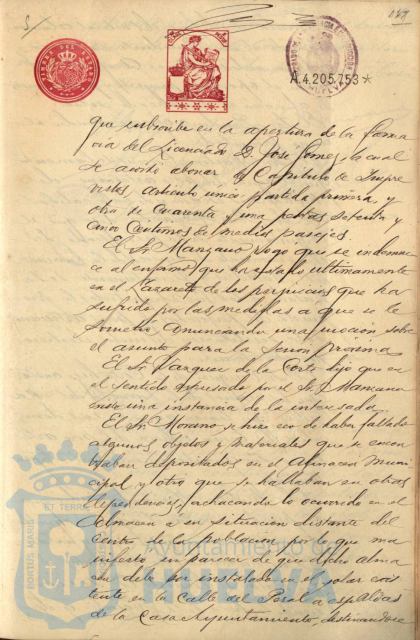 A.4.205.753*
que subscribe en la apertura de la farma
cia del Licenciado D. José Gomez, la cual
se acordó abonar del Capítulo de Impre
vistos, artículo único, partida primera, y
otra de cuarenta y una pesetas setenta y
cinco céntimos de medios pasajes.
El Sr. Manzano rogó que se indemni
ce al enfermo que ha estado ultimamente
en el Lazareto de los perjuicios que ha
sufrido por las medidas a que se le
sometió anunciando una moción sobre
el asunto para la sesión próxima
El Sr. Vazquez de la Corte dijo que en
el sentido expresado por el Sr. Manzano
existe una instancia de la interesada.
El Sr. Moreno se hizo eco de haber faltado
algunos objetos y materiales que se encon
traban depositados en el Almacen muni
cipal y otro que se hallaban en otras
dependencias, achacando lo ocurrido en el
Almacen a su situación distante del
centro de la población por lo que ma
nifestó su parecer de que dicho alma
cen debe ser instalado en el solar exis
tente en la calle del Peral a espaldas
de la Casa Ayuntamiento, destinandose
PORTUS MARIS
ET TERRE
Ayuntamiento de
HUELVA